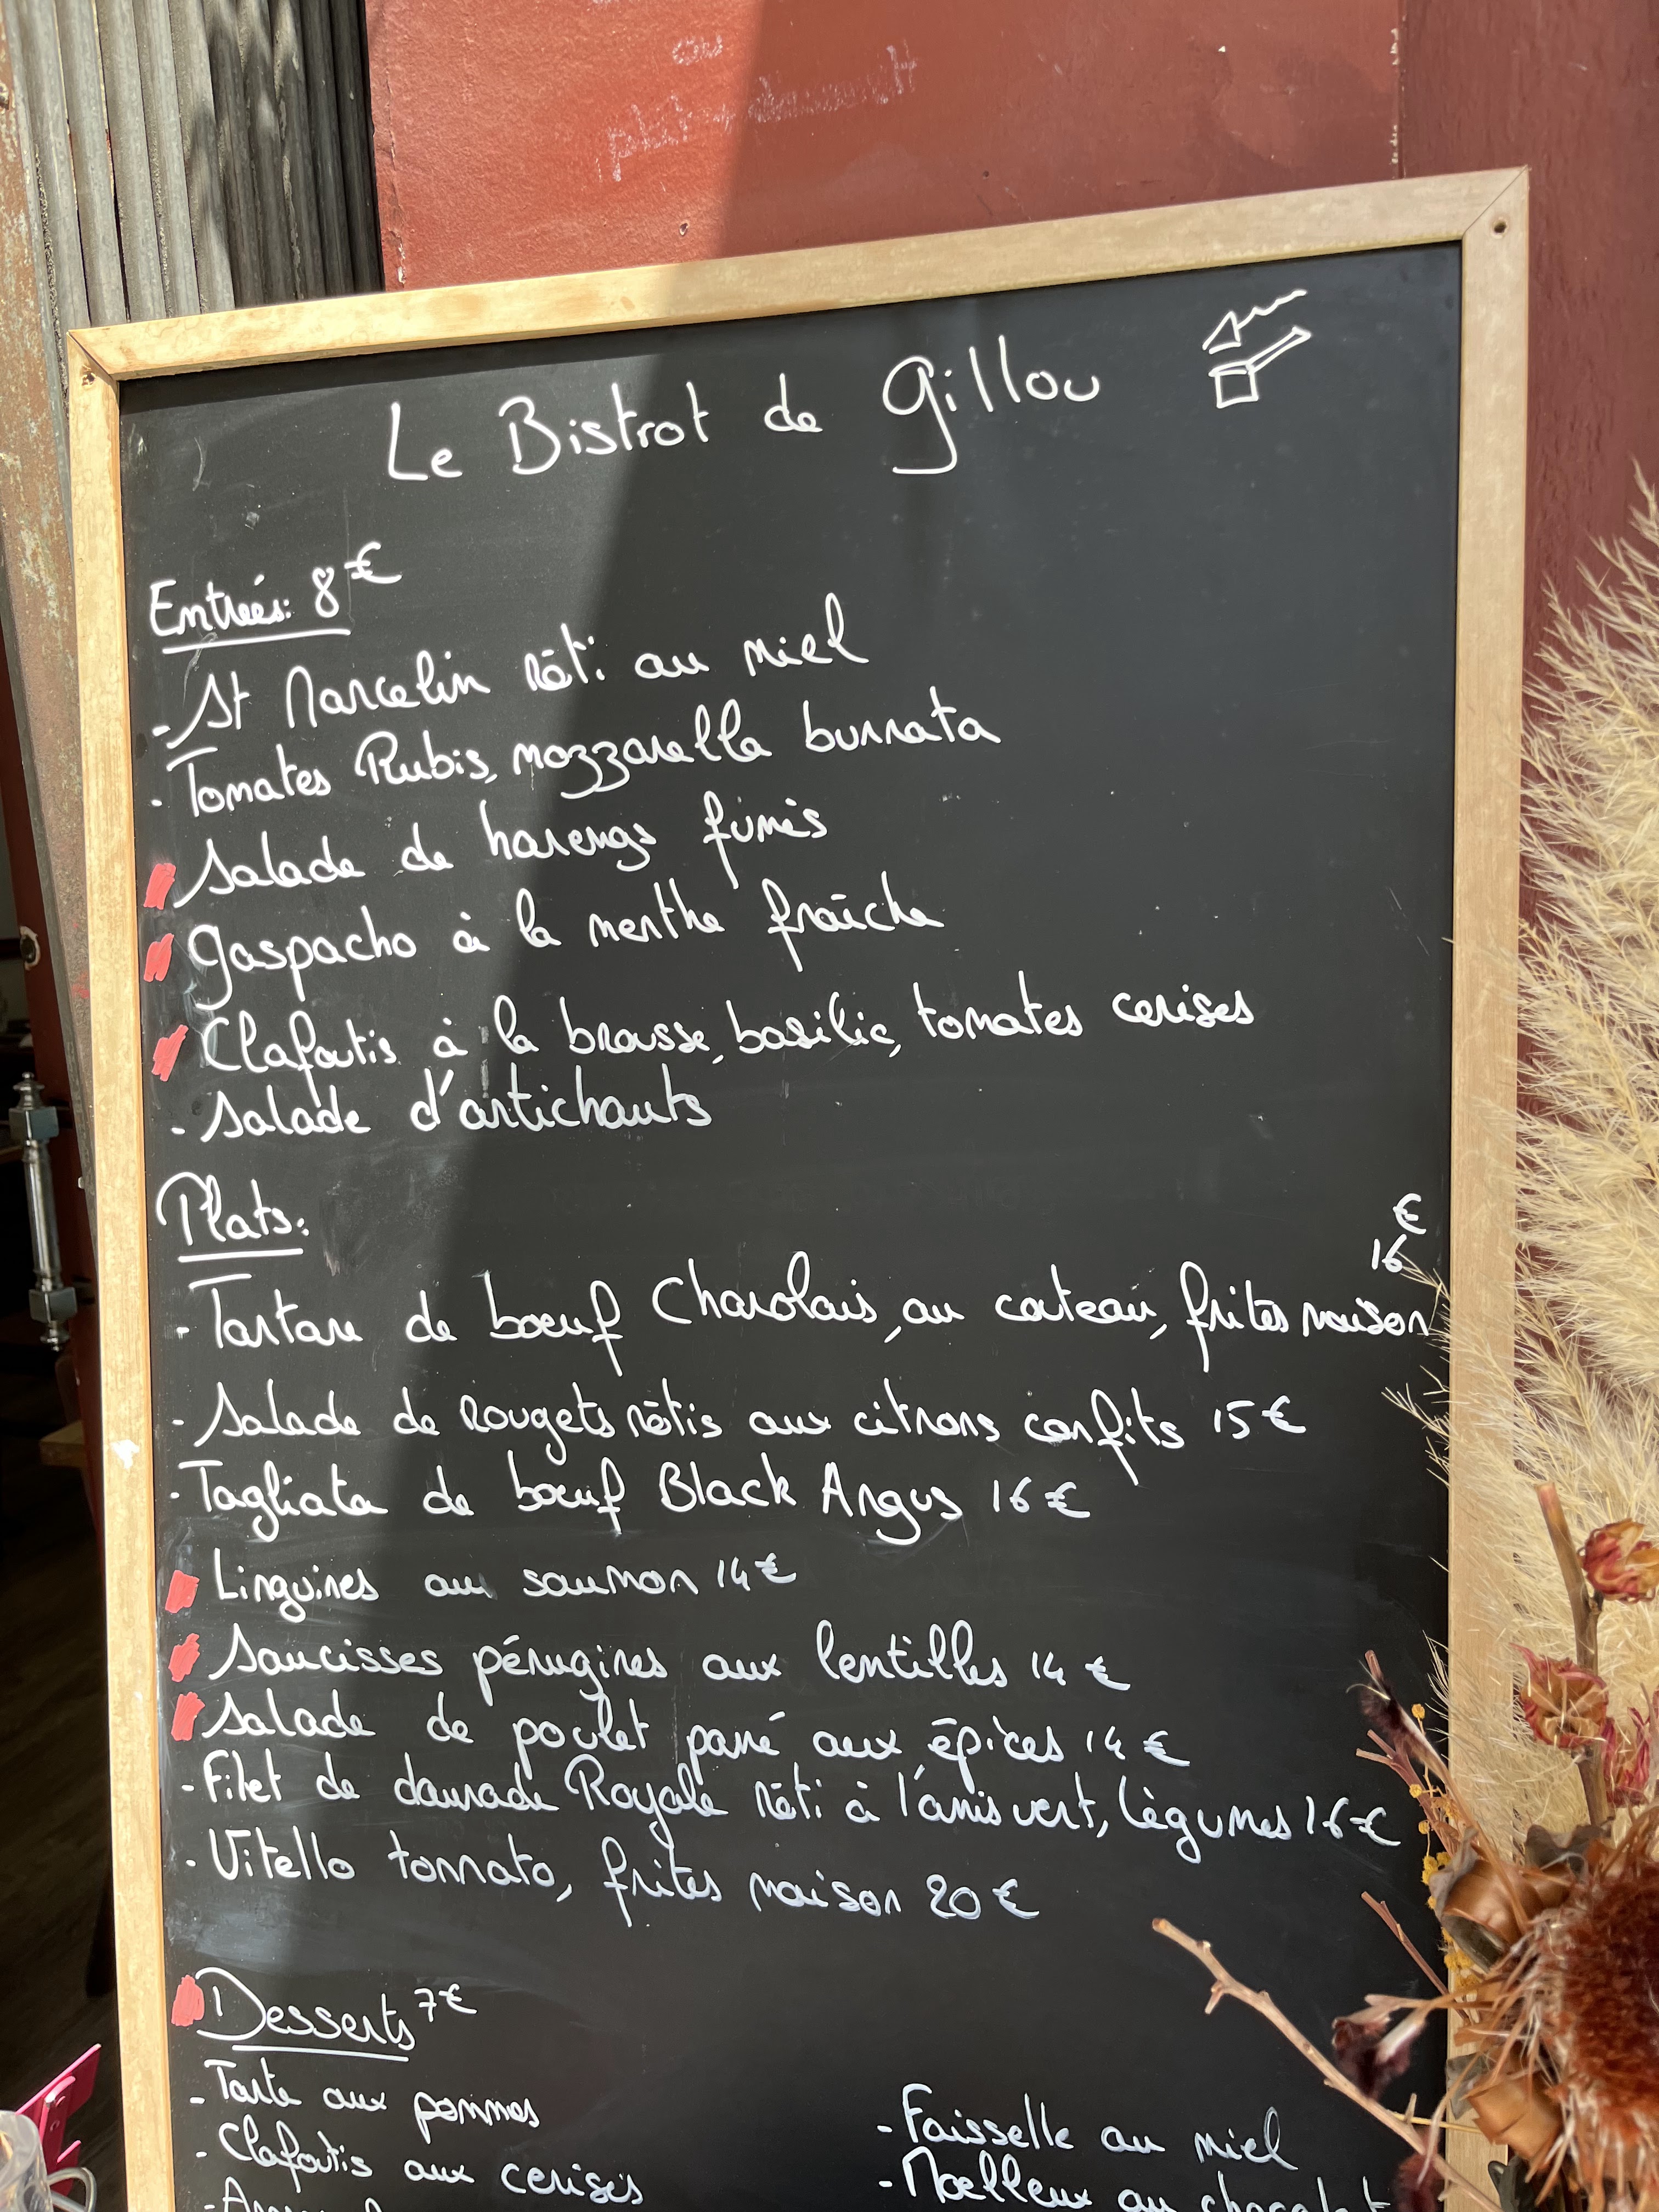 ou
plat + dessert
Le Bistrot de Gillou
Entrées: 8€
- St Marcelin rôti au miel
- Tomates Rubis, mozzarella burrata
Salade de harengs fumés
Gaspacho à la menthe fraîche
Clafoutis à la brousse, basilic, tomates cerises
- Salade d'artichauts
Plats:
16€
- Tartare de boeuf Charolais, au couteau, frites maison
- Salade de Rougets rôtis aux citrons confits 15€
- Tagliata de boeuf Black Angus 16€
Linguines au saumon 14€
Saucisses pérugines aux lentilles 14€
Salade de poulet pané aux épices 14€
- Filet de daurade Royale rôti à l'anis vert, légumes 16€
- Vitello tonnato, frites maison 20€
Desserts 7€
- Tarte aux pommes
- Clafoutis aux cerises
- Faisselle au miel
- Moelleux au chocolat